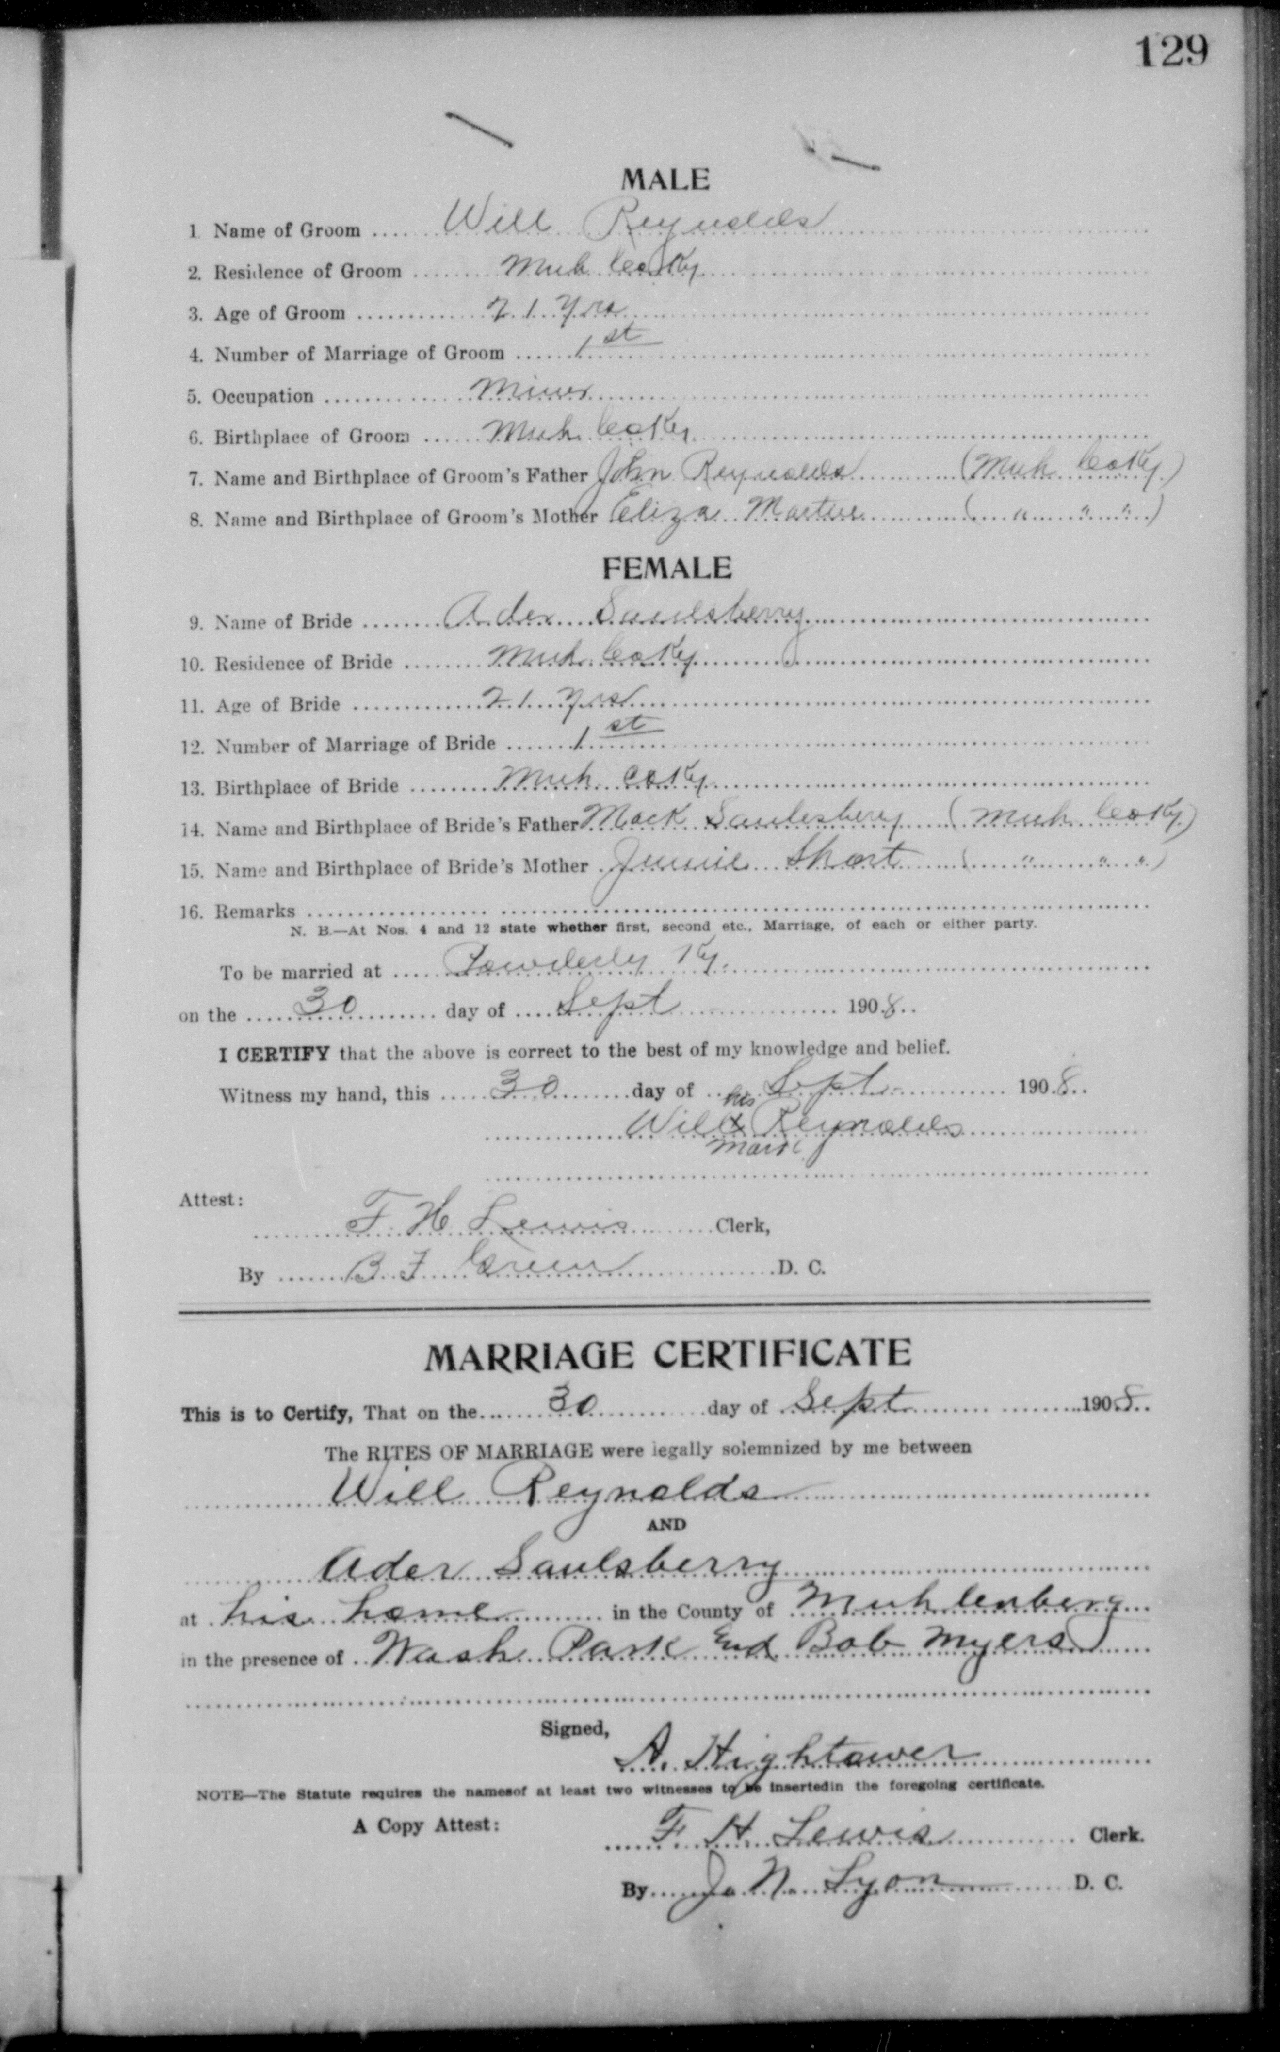 129
MALE
1. Name of Groom Will Reynolds
2. Residence of Groom Muh Co Ky
3. Age of Groom 21 yrs
4. Number of Marriage of Groom 1st
5. Occupation Miner
6. Birthplace of Groom Muh Co Ky
7. Name and Birthplace of Groom's Father John Reynolds (Muh Co Ky)
8. Name and Birthplace of Groom's Mother Eliza Martin ( " " " )
FEMALE
9. Name of Bride Ader Saulsberry
10. Residence of Bride Muh Co Ky
11. Age of Bride 21 yrs
12. Number of Marriage of Bride 1st
13. Birthplace of Bride Muh Co Ky
14. Name and Birthplace of Bride's Father Mack Saulesbery (Muh Co Ky)
15. Name and Birthplace of Bride's Mother Short ( " " " )
16. Remarks
N. B.—At Nos. 4 and 12 state whether first, second etc., Marriage, of each or either party.
To be married at Powderly Ky.
on the 30 day of Sept 1908
I CERTIFY that the above is correct to the best of my knowledge and belief.
Witness my hand, this 30 day of Sept 1908
his
Will x Reynolds
mark
Attest:
F. H. Lewis Clerk,
By B. F. Green D. C.
MARRIAGE CERTIFICATE
This is to Certify, That on the 30 day of Sept 1908
The RITES OF MARRIAGE were legally solemnized by me between
Will Reynolds
AND
Ader Saulsberry
at his home in the County of Muhlenberg
in the presence of Wash Park End Bob Myers
Signed,
A. Hightower
NOTE—The Statute requires the namesof at least two witnesses to be insertedin the foregoing certificate.
A Copy Attest:
F. H. Lewis Clerk.
By J. N. Lyon D. C.